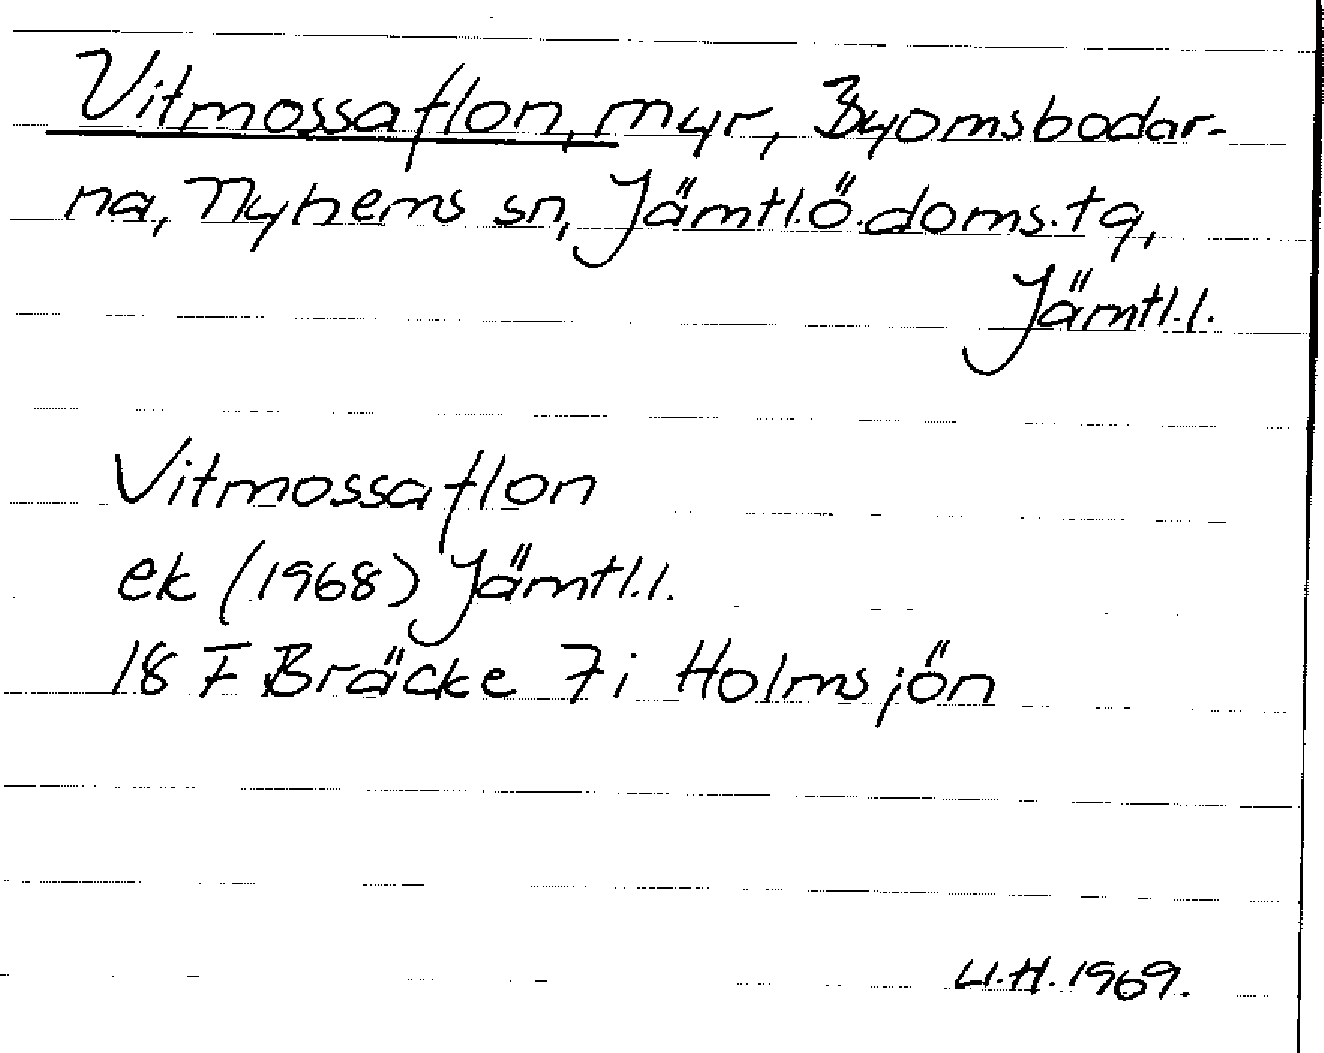 Vitmossaflon, myr, Byomsbodar-
na, Nyhems sn, Jämtl.ö.doms.tg,
Jämtl.l.
Vitmossaflon
ek (1968) Jämtl.l.
18 F Bräcke 7i Holmsjön
U.H. 1969.